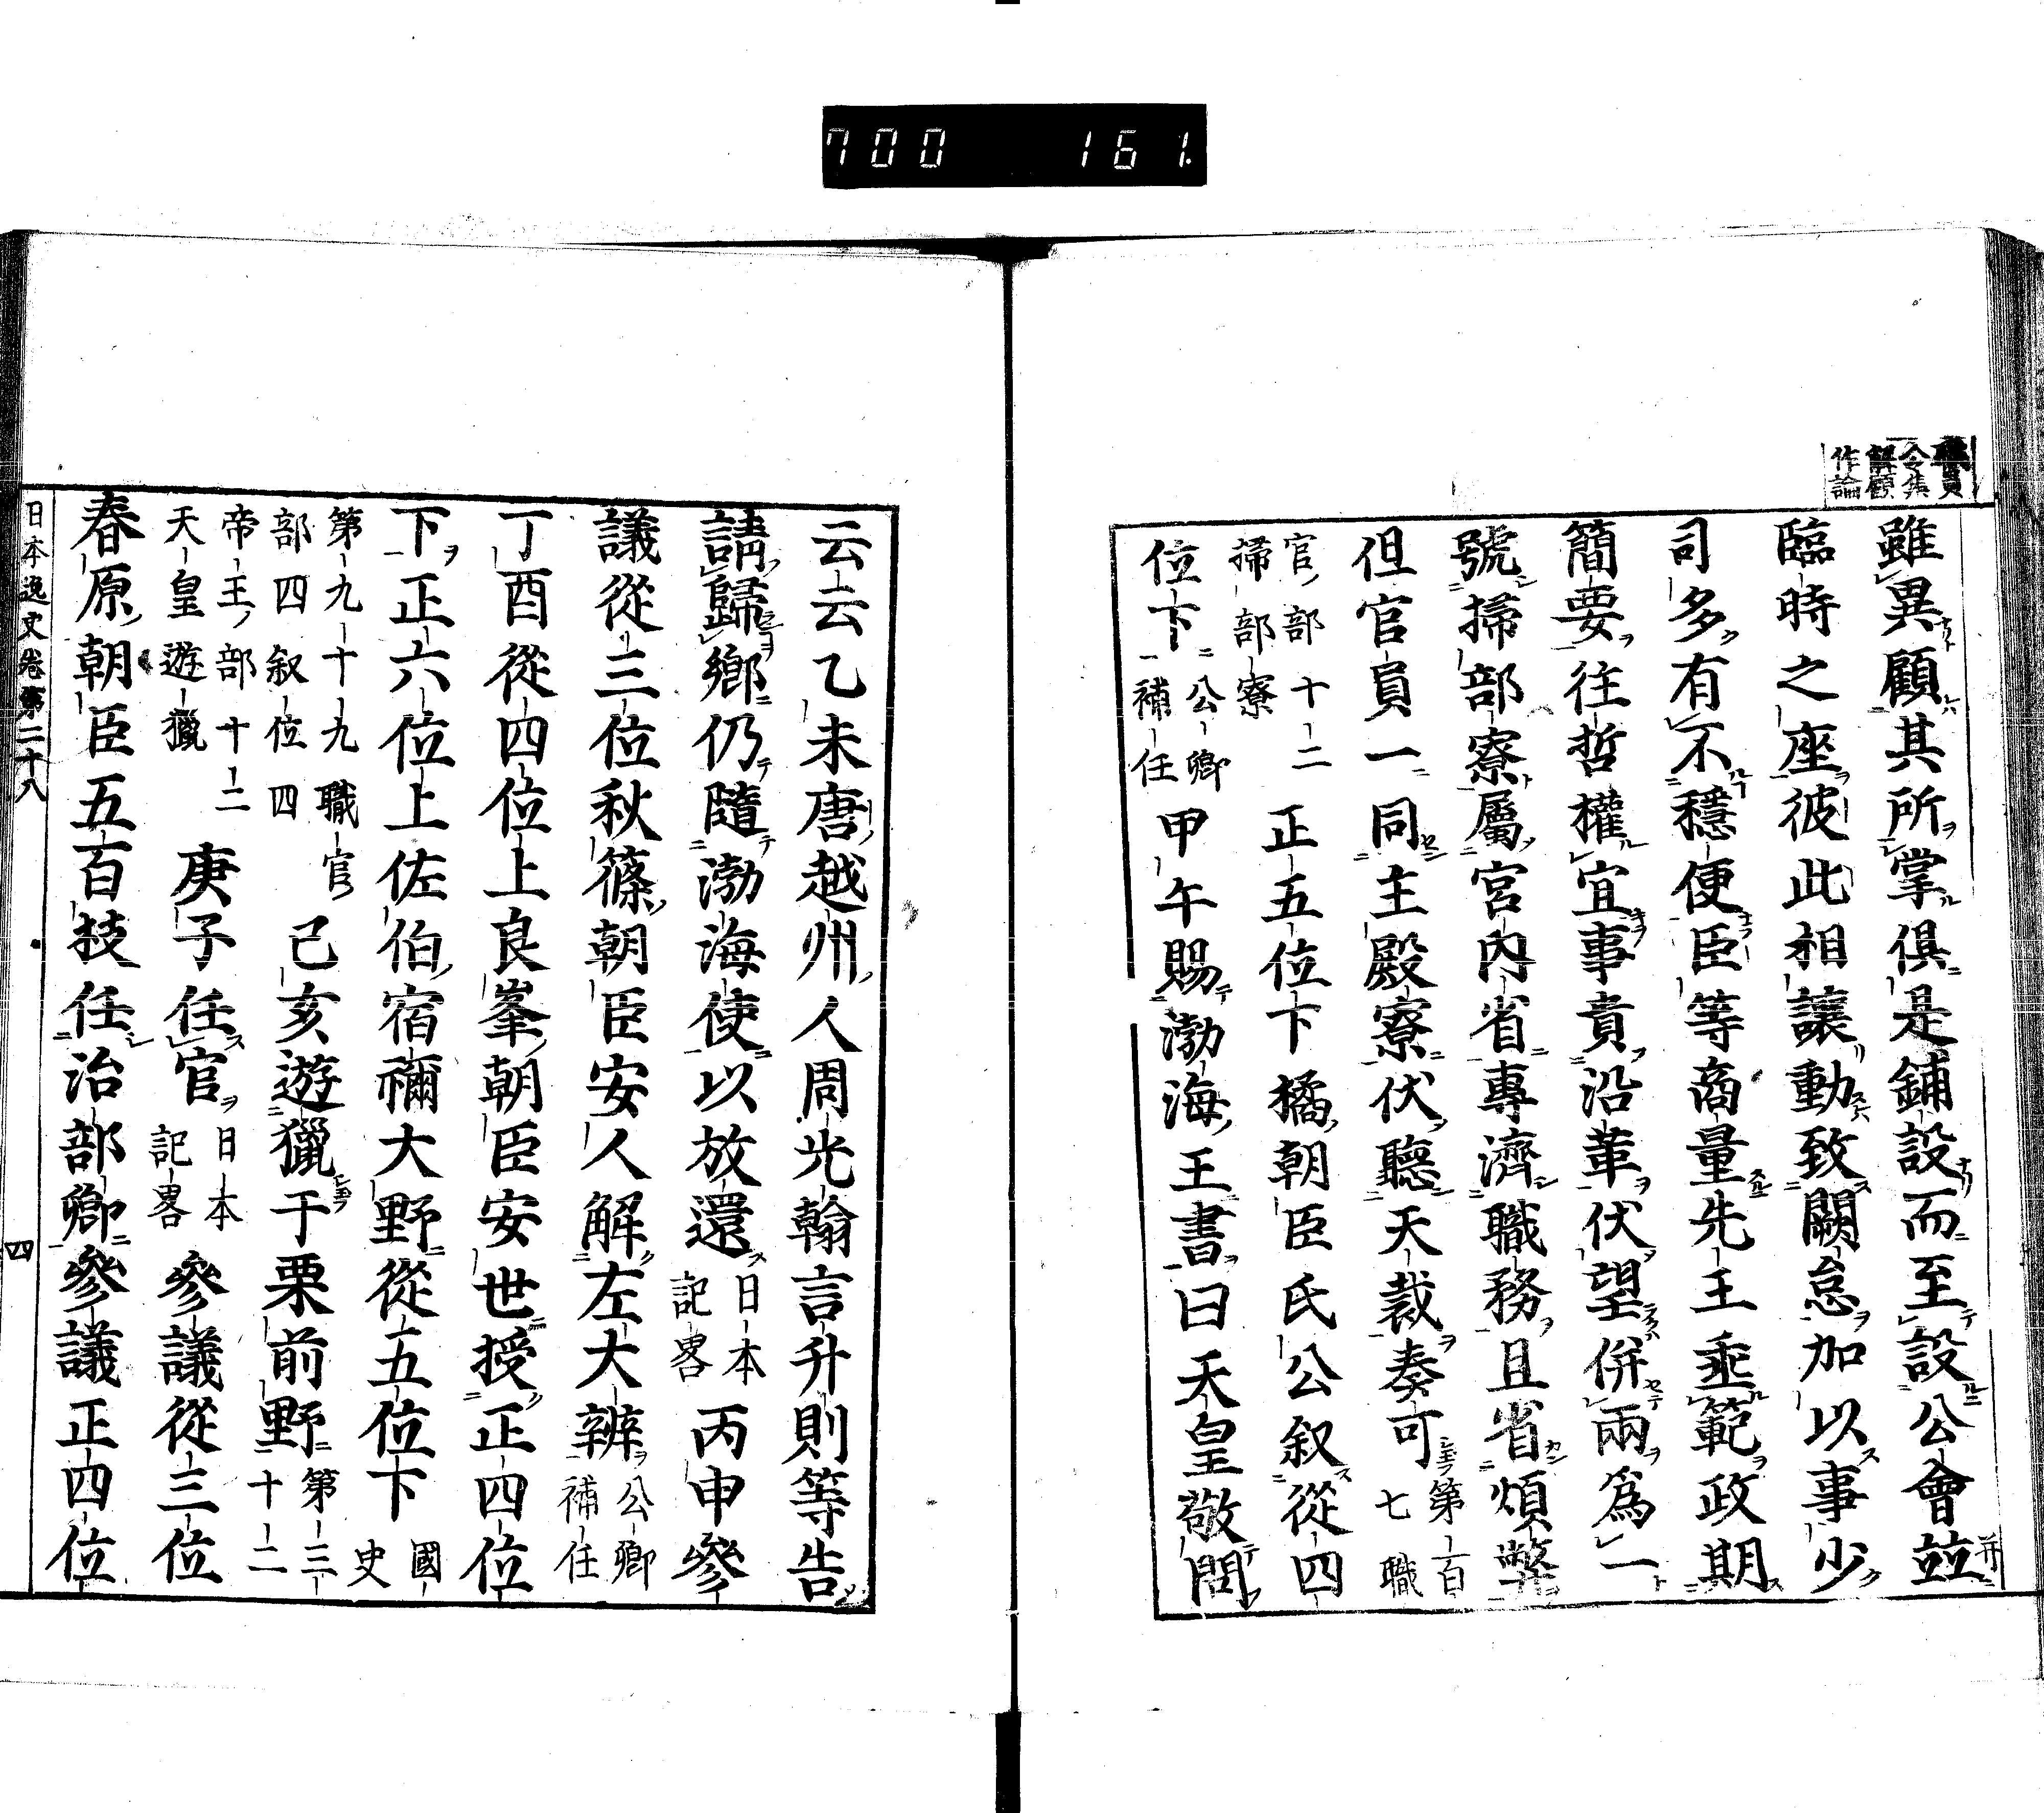 700 161.
職員
令集
解顧
作論
雖異顧其所掌俱是鋪設而至設公會並
臨時之座彼此相讓動致闕怠加以事少
司多有不穩便臣等商量先王垂範政期
簡要往哲權宜事貴沿革伏望併兩爲一
號掃部寮屬宮內省專濟職務且省煩弊
但官員一同主殿寮伏聽天裁奏可第一百七職
官部十二掃部寮正五位下橘朝臣氏公叙從四
位下公卿補任甲午賜渤海王書曰天皇敬問
云云乙未唐越州人周光翰言升則等告
請歸鄉仍隨渤海使以放還日本記畧丙申參
議從三位秋篠朝臣安人解左大辨公卿補任
丁酉從四位上良峯朝臣安世授正四位
下正六位上佐伯宿禰大野從五位下國史
第九十九職官部四叙位四己亥遊獵于栗前野第三十二
帝王部十二天皇遊獵庚子任官日本記畧參議從三位
春原朝臣五百枝任治部卿參議正四位
日本逸史卷第二十八
四